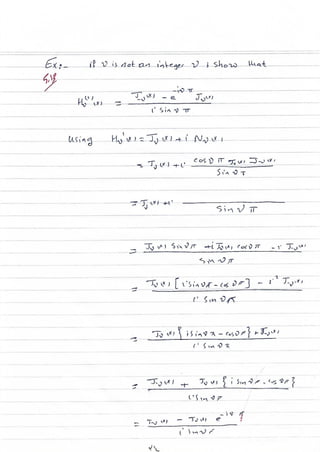 Ex:- If ν is not an integer ν, show that
5.18
Hν⁽¹⁾(x) = J-ν(x) - e^{-iνπ} Jν(x) / i sin νπ
Using Hν¹(x) = Jν(x) + i Nν(x)
= Jν(x) + i cos νπ Jν(x) J-ν(x) / Sin νπ
= Jν(x) + i / Sin νπ
= Jν(x) Sin νπ + i Jν(x) cos νπ - i J-ν(x) / Sin νπ
= Jν(x) [i sin νπ - cos νπ] - i² J-ν(x) / i Sin νπ
= Jν(x) {i sin νπ - cos νπ} + J-ν(x) / i Sin νπ
= J-ν(x) + Jν(x) {i sin νπ - cos νπ} / i Sin νπ
= J-ν(x) - Jν(x) e^{-iνπ} / i Sin νπ